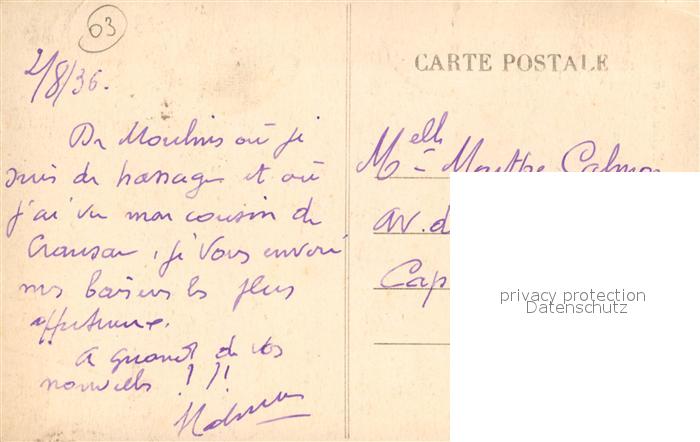 03
2/8/36.
De Moulins où je
suis de passage et où
j'ai vu mon cousin de
Cransac, je vous envoie
mes baisers les plus
affectueux.
A quand de vos
nouvelles ? !!
CARTE POSTALE
Melle
av. d
Cap
privacy protection
Datenschutz